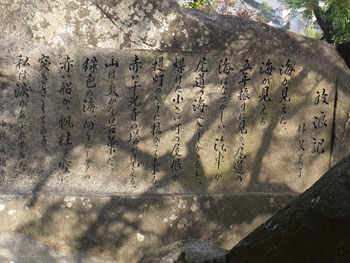 放浪記
林芙美子
海が見えた
海が見える
五年振りに見る尾道の
海はなつかしい、汽車が
尾道の海へさしかかると
煤けた小さい町の屋根が
提灯のように拡がって来る
赤い千光寺の塔が見える
山は爽かな若葉だ
緑色の海向うにドックの
赤い船が帆柱を空に
突きさしている
私は涙があふれていた